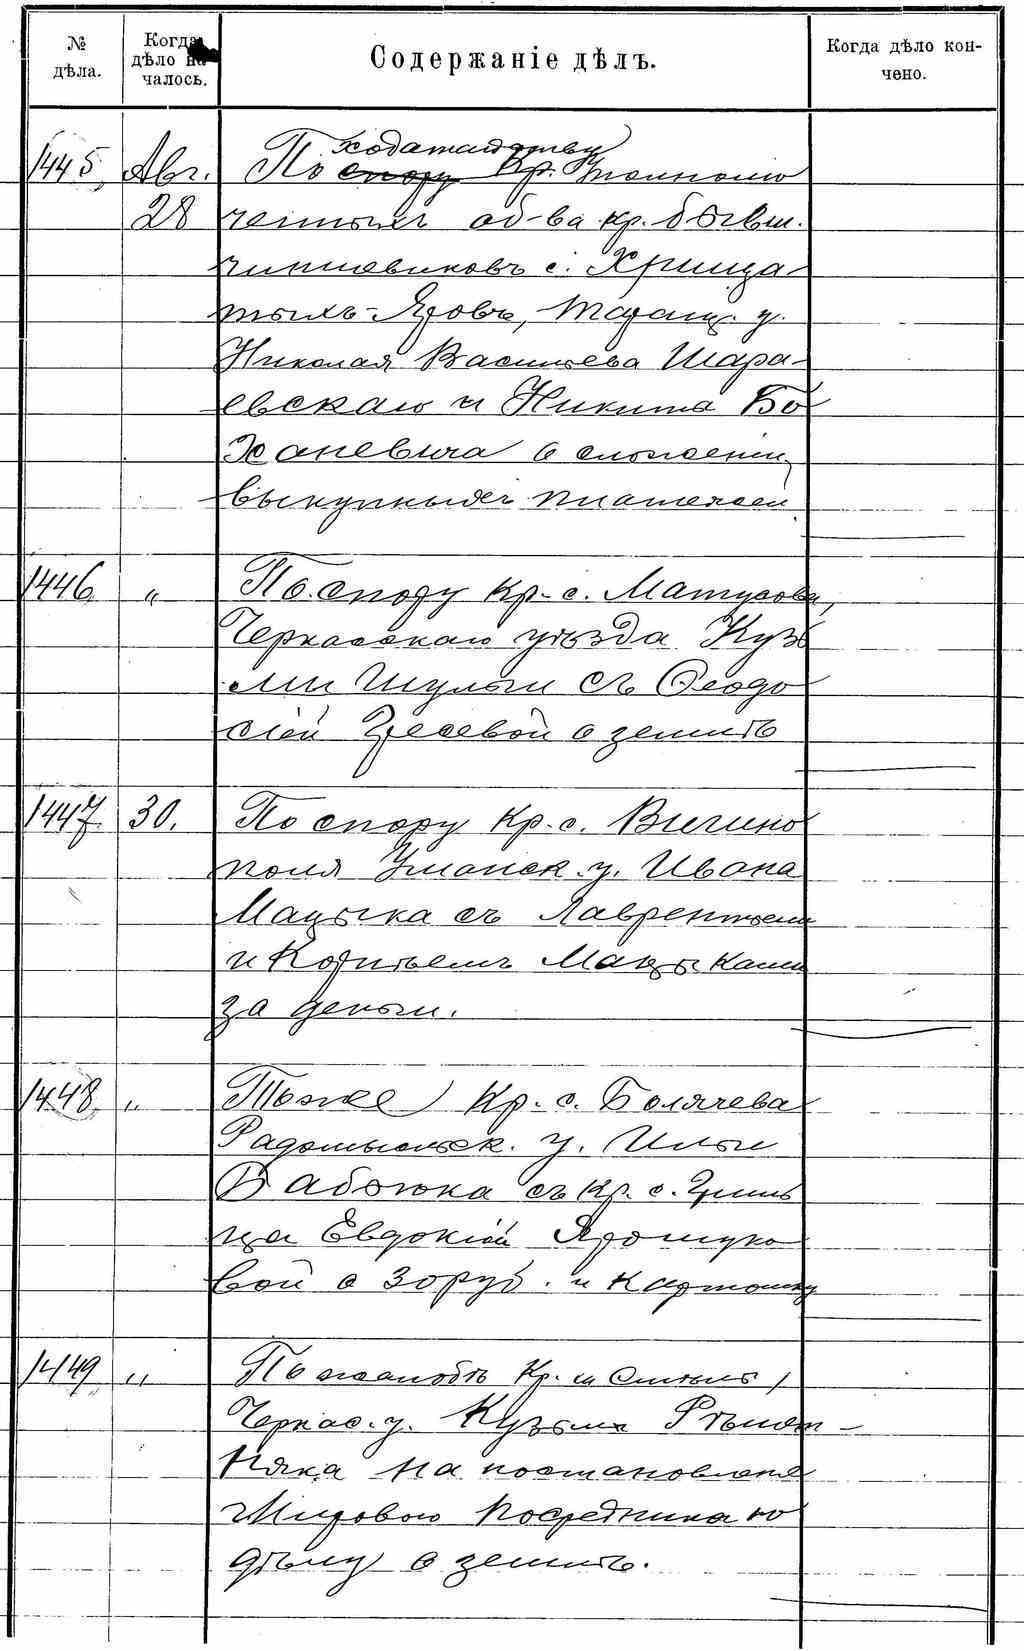 № дѣла.
Когда дѣло началось.
Содержаніе дѣлъ.
Когда дѣло кончено.
1445, Авг. 28
ходатайству
По спору Кр. Уполномо
ченныхъ об-ва кр. бывш.
чиншевиковъ с. Хрища-
тыхъ-Яровъ, Таращ. у.
Николая Васильева Шара-
евскаго и Никиты Бо
ханевича о сложеніи
выкупныхъ платежей
1446 „
По спору кр-с. Матусова,
Черкасскаго уѣзда Кузь
мы Шульги съ Ѳеодо
сіей Гресевой о землѣ
1447 30.
По спору Кр-с. Вигино
поля Уманск. у. Ивана
Мацыка съ Лаврентіем
и Корнѣемъ Мацыками
за деньги.
1448 „
Тоже Кр. с. Болячева
Радомысльск. у. Ильи
Бабюка съ кр. с.
Евдокіей Ярошуко
вой о заруб. и картошку
1449 „
По жалобѣ Кр. м Смѣлы,
Черкас. у. Кузьмы Рѣпят-
няка на постановленіе
Мирового Посредника по
дѣлу о землѣ.